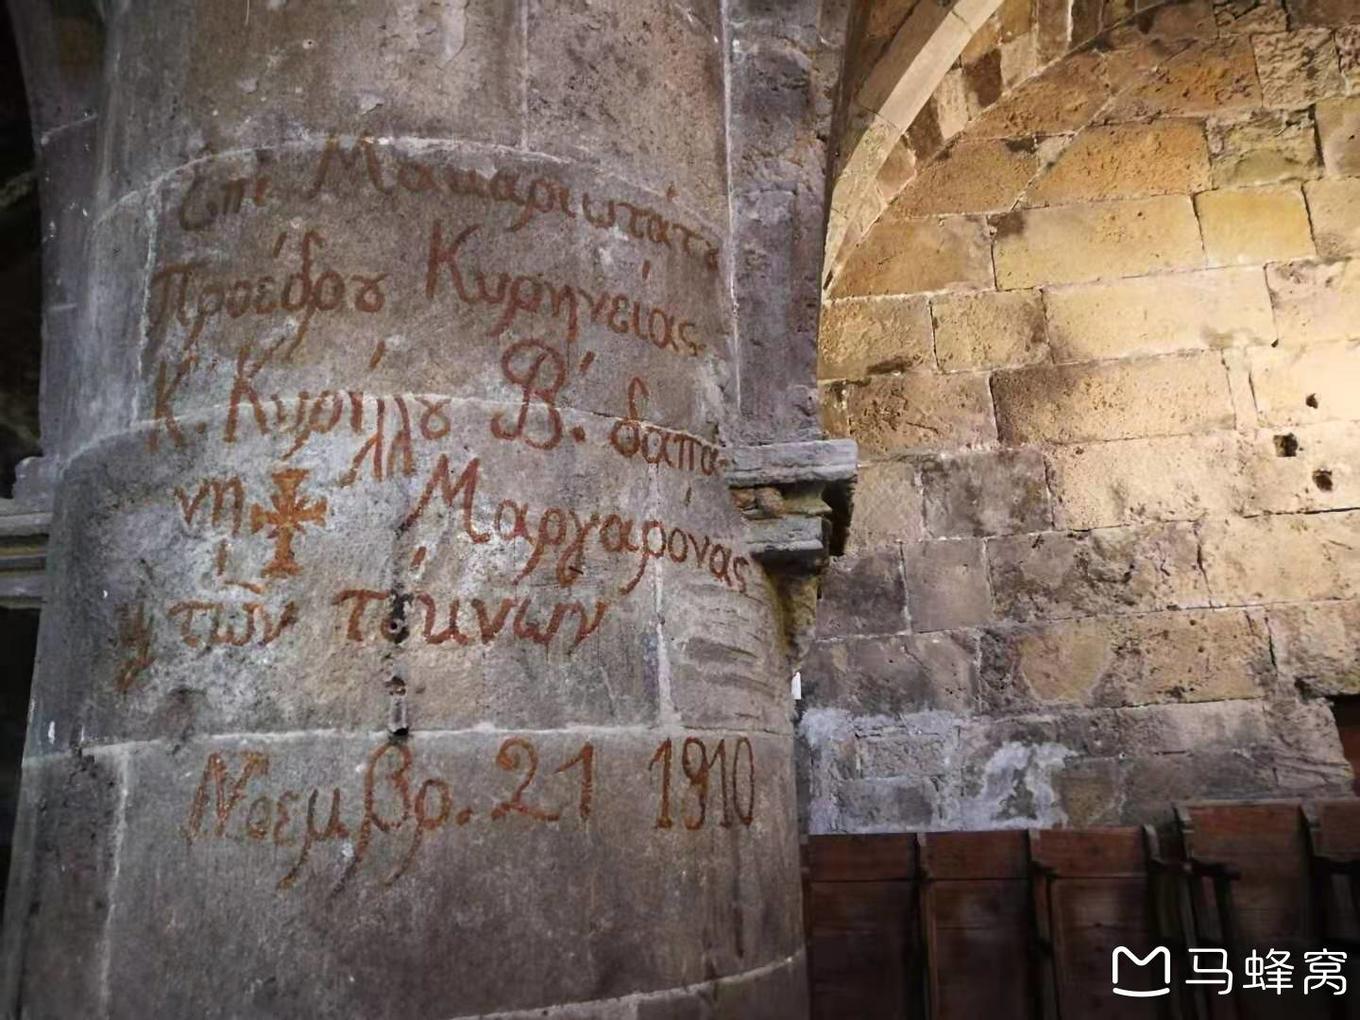 Ἐπὶ Μακαριωτάτȣ
Προέδρȣ Κυρηνείας
Κ. Κυρίλλȣ Β΄. δαπά-
νῃ Μαργαρόνας
ϗ τῶν τέκνων
Νοεμβρ. 21 1910
马蜂窝